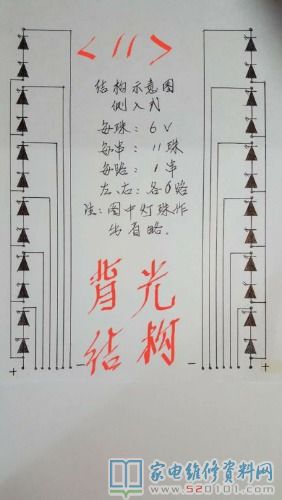 <11>
结构示意图
侧入式
每珠：6V
每串：11珠
每路：1串
左、右：各6路
注：图中灯珠作
出省略.
背光
结构
+
-
-
+
家电维修资料网
www.520101.com